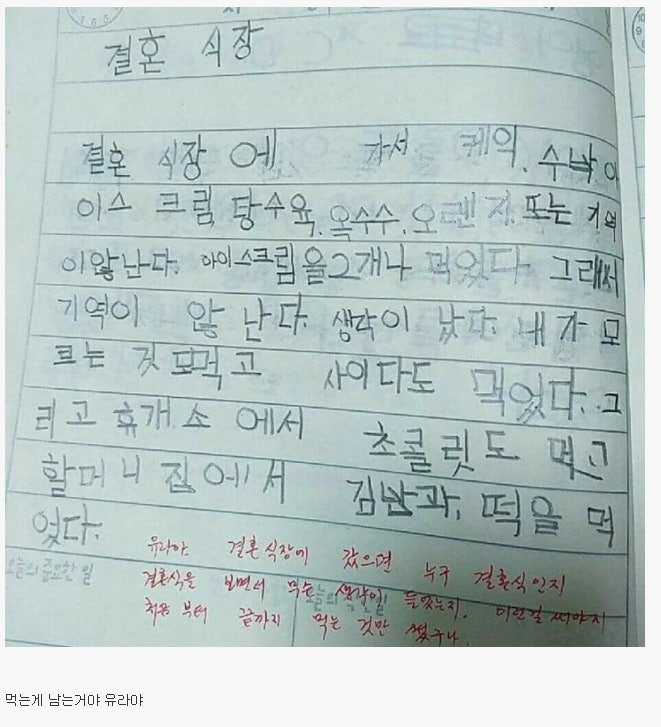 결혼 식장
결혼 식장에 가서 케익, 수박, 아
이스 크림 탕수육, 옥수수, 오렌지, 또는 기억
이않난다. 아이스크림을2개나 먹었다. 그래서
기억이 않 난다. 생각이 났다. 내가 모
르는 것 또먹고 사이다도 먹었다. 그
리고 휴개소에서 초콜릿도 먹고
할머니 집에서 김밥과, 떡을 먹
었다.
유라야. 결혼식장에 갔으면 누구 결혼식인지
오늘의 중요한 일
결혼식을 보면서 무슨 생각이 들었는지, 이런걸 써야지
처음부터 끝까지 먹는 것만 썼구나.
먹는게 남는거야 유라야